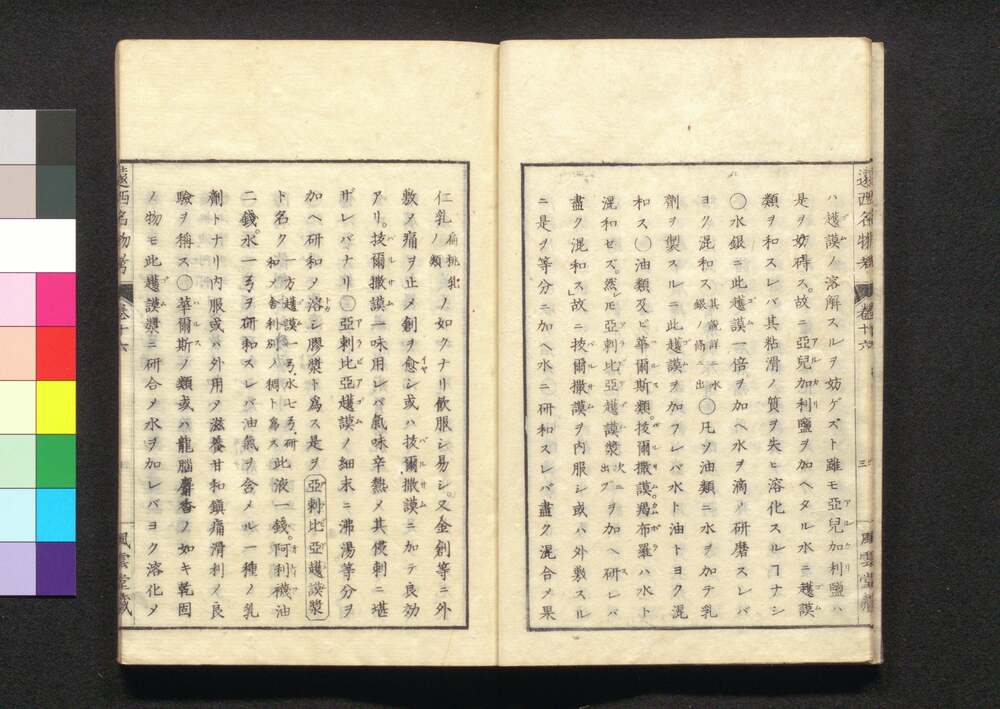 ハ護謨ノ溶解スルヲ妨ゲズト雖モ亞兒加利鹽ハ
是ヲ妨碍ス故ニ亞兒加利鹽ヲ加ヘタル水ニ護謨
類ヲ和スレバ其粘滑ノ質ヲ失ヒ溶化スルヿナシ
〇水銀ニ此護謨一倍ヲ加ヘ水ヲ滴メ研磨スレバ
ヨク混和ス其説詳ニ水銀ノ條ニ出〇凡ソ油類ニ水ヲ加テ乳
劑ヲ製スルニ此護謨ヲ加フレバ水ト油トヨク混
和ス〇油類及ビ華爾斯類拔爾撒謨羯布羅ハ水ト
混和セズ然ㇾ𪜈亞剌比亞護謨漿次ニ出ヅヲ加ヘ研レバ
盡ク混和ス故ニ拔爾撒謨ヲ內服シ或ハ外敷スル
ニ是ヲ等分ニ加ヘ水ニ研和スレバ盡ク混合メ果
仁乳扁桃乳ノ類ノ如クナリ飮服シ易シ又金創等ニ外
敷メ痛ヲ止メ創ヲ愈シ或ハ拔爾撒謨ニ加テ良効
アリ拔爾撒謨一味用レバ氣味辛熱メ其侵刺ニ堪
ザレバナリ〇亞剌比亞護謨ノ細末ニ沸湯等分ヲ
加ヘ研和メ溶シ膠漿ト爲ス是ヲ亞剌比亞護謨漿
ト名ク一方護謨一弓水七弓研和メ舍利別ノ稠ト爲ス此液一錢阿利襪油
二錢水一弓ヲ研和スレバ油氣ヲ含メル一種ノ乳
劑トナリ內服或ハ外用メ滋養甘和鎭痛滑利ノ良
驗ヲ稱ス〇華爾斯ノ類或ハ龍腦麝香ノ如キ乾固
ノ物モ此護謨漿ニ研合メ水ヲ加レバヨク溶化メ
遠西名物考
卷十六
風雲堂藏